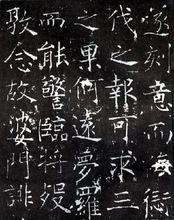 遂刻意而悔愆
代之報可求三
之果何遠夢羅
而能警臨將歿
敦念故婆門誹